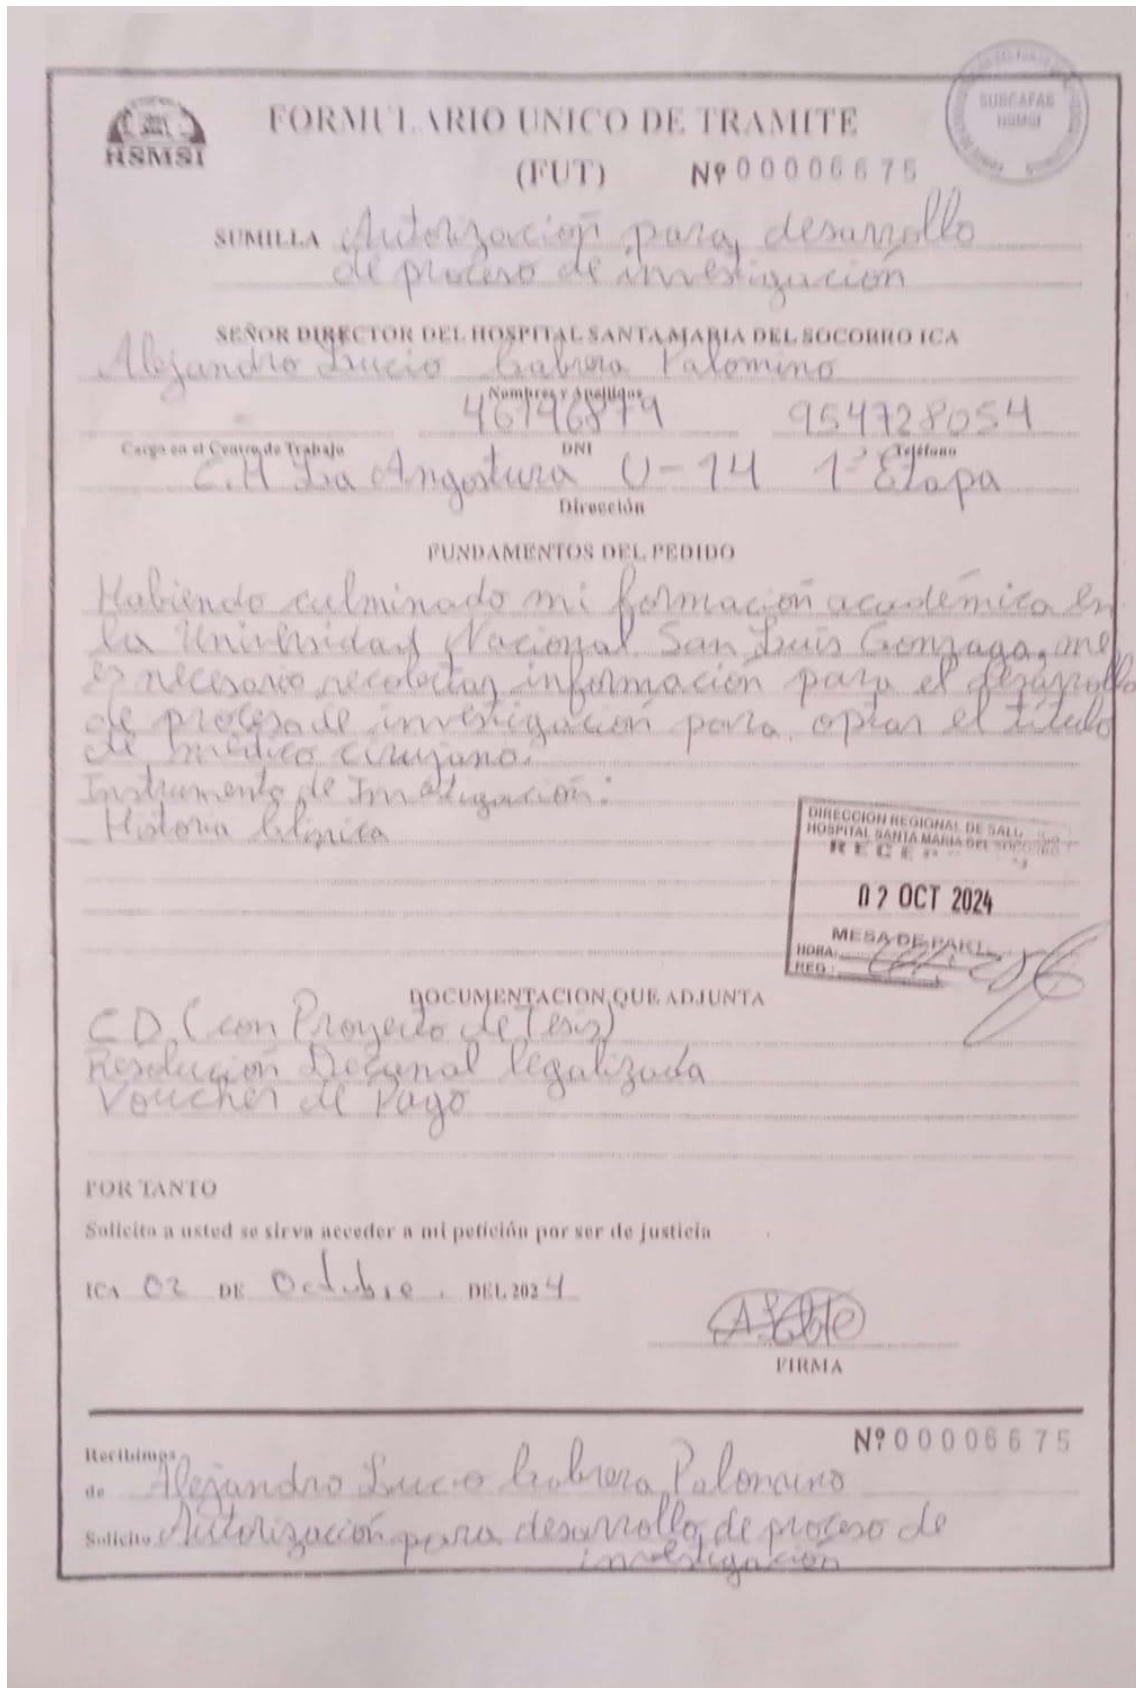 HSMSI
FORMULARIO UNICO DE TRAMITE
(FUT) Nº 00006675
SUBCAFAE
HSMSI
SUMILLA Autorización para desarrollo
de proceso de investigación
SEÑOR DIRECTOR DEL HOSPITAL SANTA MARIA DEL SOCORRO ICA
Alejandro Lucio Cabrera Palomino
Nombres y Apellidos
46746879 954728054
Cargo en el Centro de Trabajo DNI Teléfono
C.H La Angostura U-14 1º Etapa
Dirección
FUNDAMENTOS DEL PEDIDO
Habiendo culminado mi formación académica en
la Universidad Nacional San Luis Gonzaga, me
es necesario recolectar información para el desarrollo
de proceso de investigación para optar el título
de médico cirujano.
Instrumento de Investigación:
Historia Clínica
DIRECCION REGIONAL DE
HOSPITAL SANTA MARIA DEL SOCORRO
02 OCT 2024
MESA DE
HORA:
REG.:
DOCUMENTACION QUE ADJUNTA
CD (con Proyecto de Tesis)
Resolución Decanal legalizada
Voucher de Pago
POR TANTO
Solicito a usted se sirva acceder a mi petición por ser de justicia
ICA 02 DE Octubre. DEL 2024
FIRMA
Nº 00006675
Recibimos
de Alejandro Lucio Cabrera Palomino
Solicito Autorización para desarrollo de proceso de
investigación